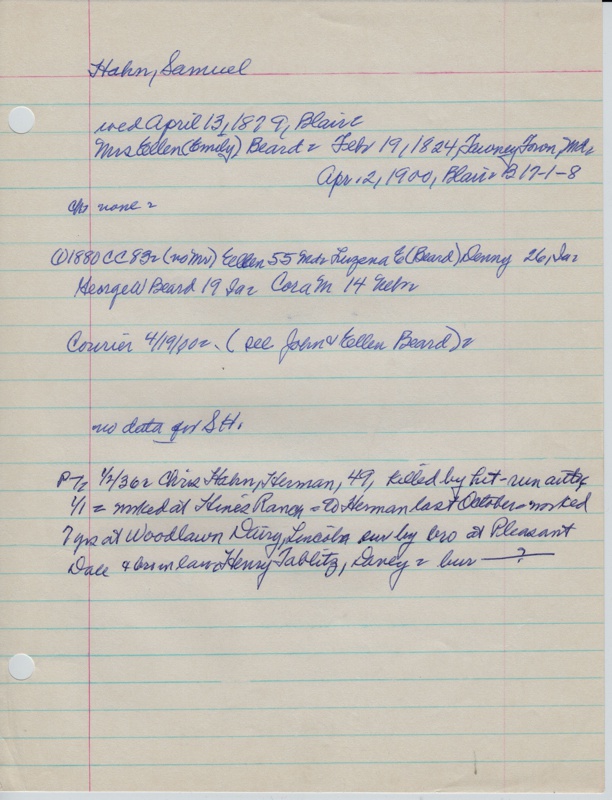 Hahn, Samuel
wed April 13, 1879, Blair=
Mrs Ellen (Emily) Beard = Febr 19, 1824, Tawney Town, Md=
Apr. 2, 1900, Blair= B 17-1-8
ch: none =
① 1880 CC 83= (no Mr) Ellen 55 Md= Luzena E (Beard) Denny 26, Ia=
George W Beard 19 Ia= Cora M 14 Nebr
Courier 4/19/00=. (see John & Ellen Beard)=
no data for SH.
P-T 1/2/36= Chris Hahn, Herman, 49, killed by hit-run auto
1/1 = worked at Hines Ranch = to Herman last October = worked
7 yrs at Woodlawn Dairy, Lincoln sur by bro at Pleasant
Dale & bro in law Henry Tablitz, Davey = bur — ? —